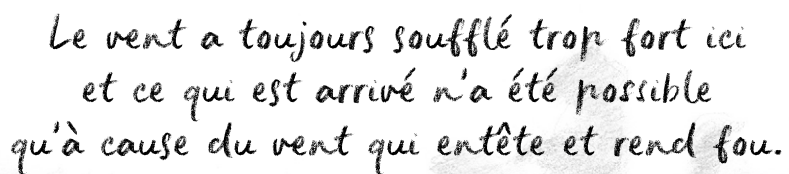 Le vent a toujours soufflé trop fort ici
et ce qui est arrivé n'a été possible
qu'à cause du vent qui entête et rend fou.